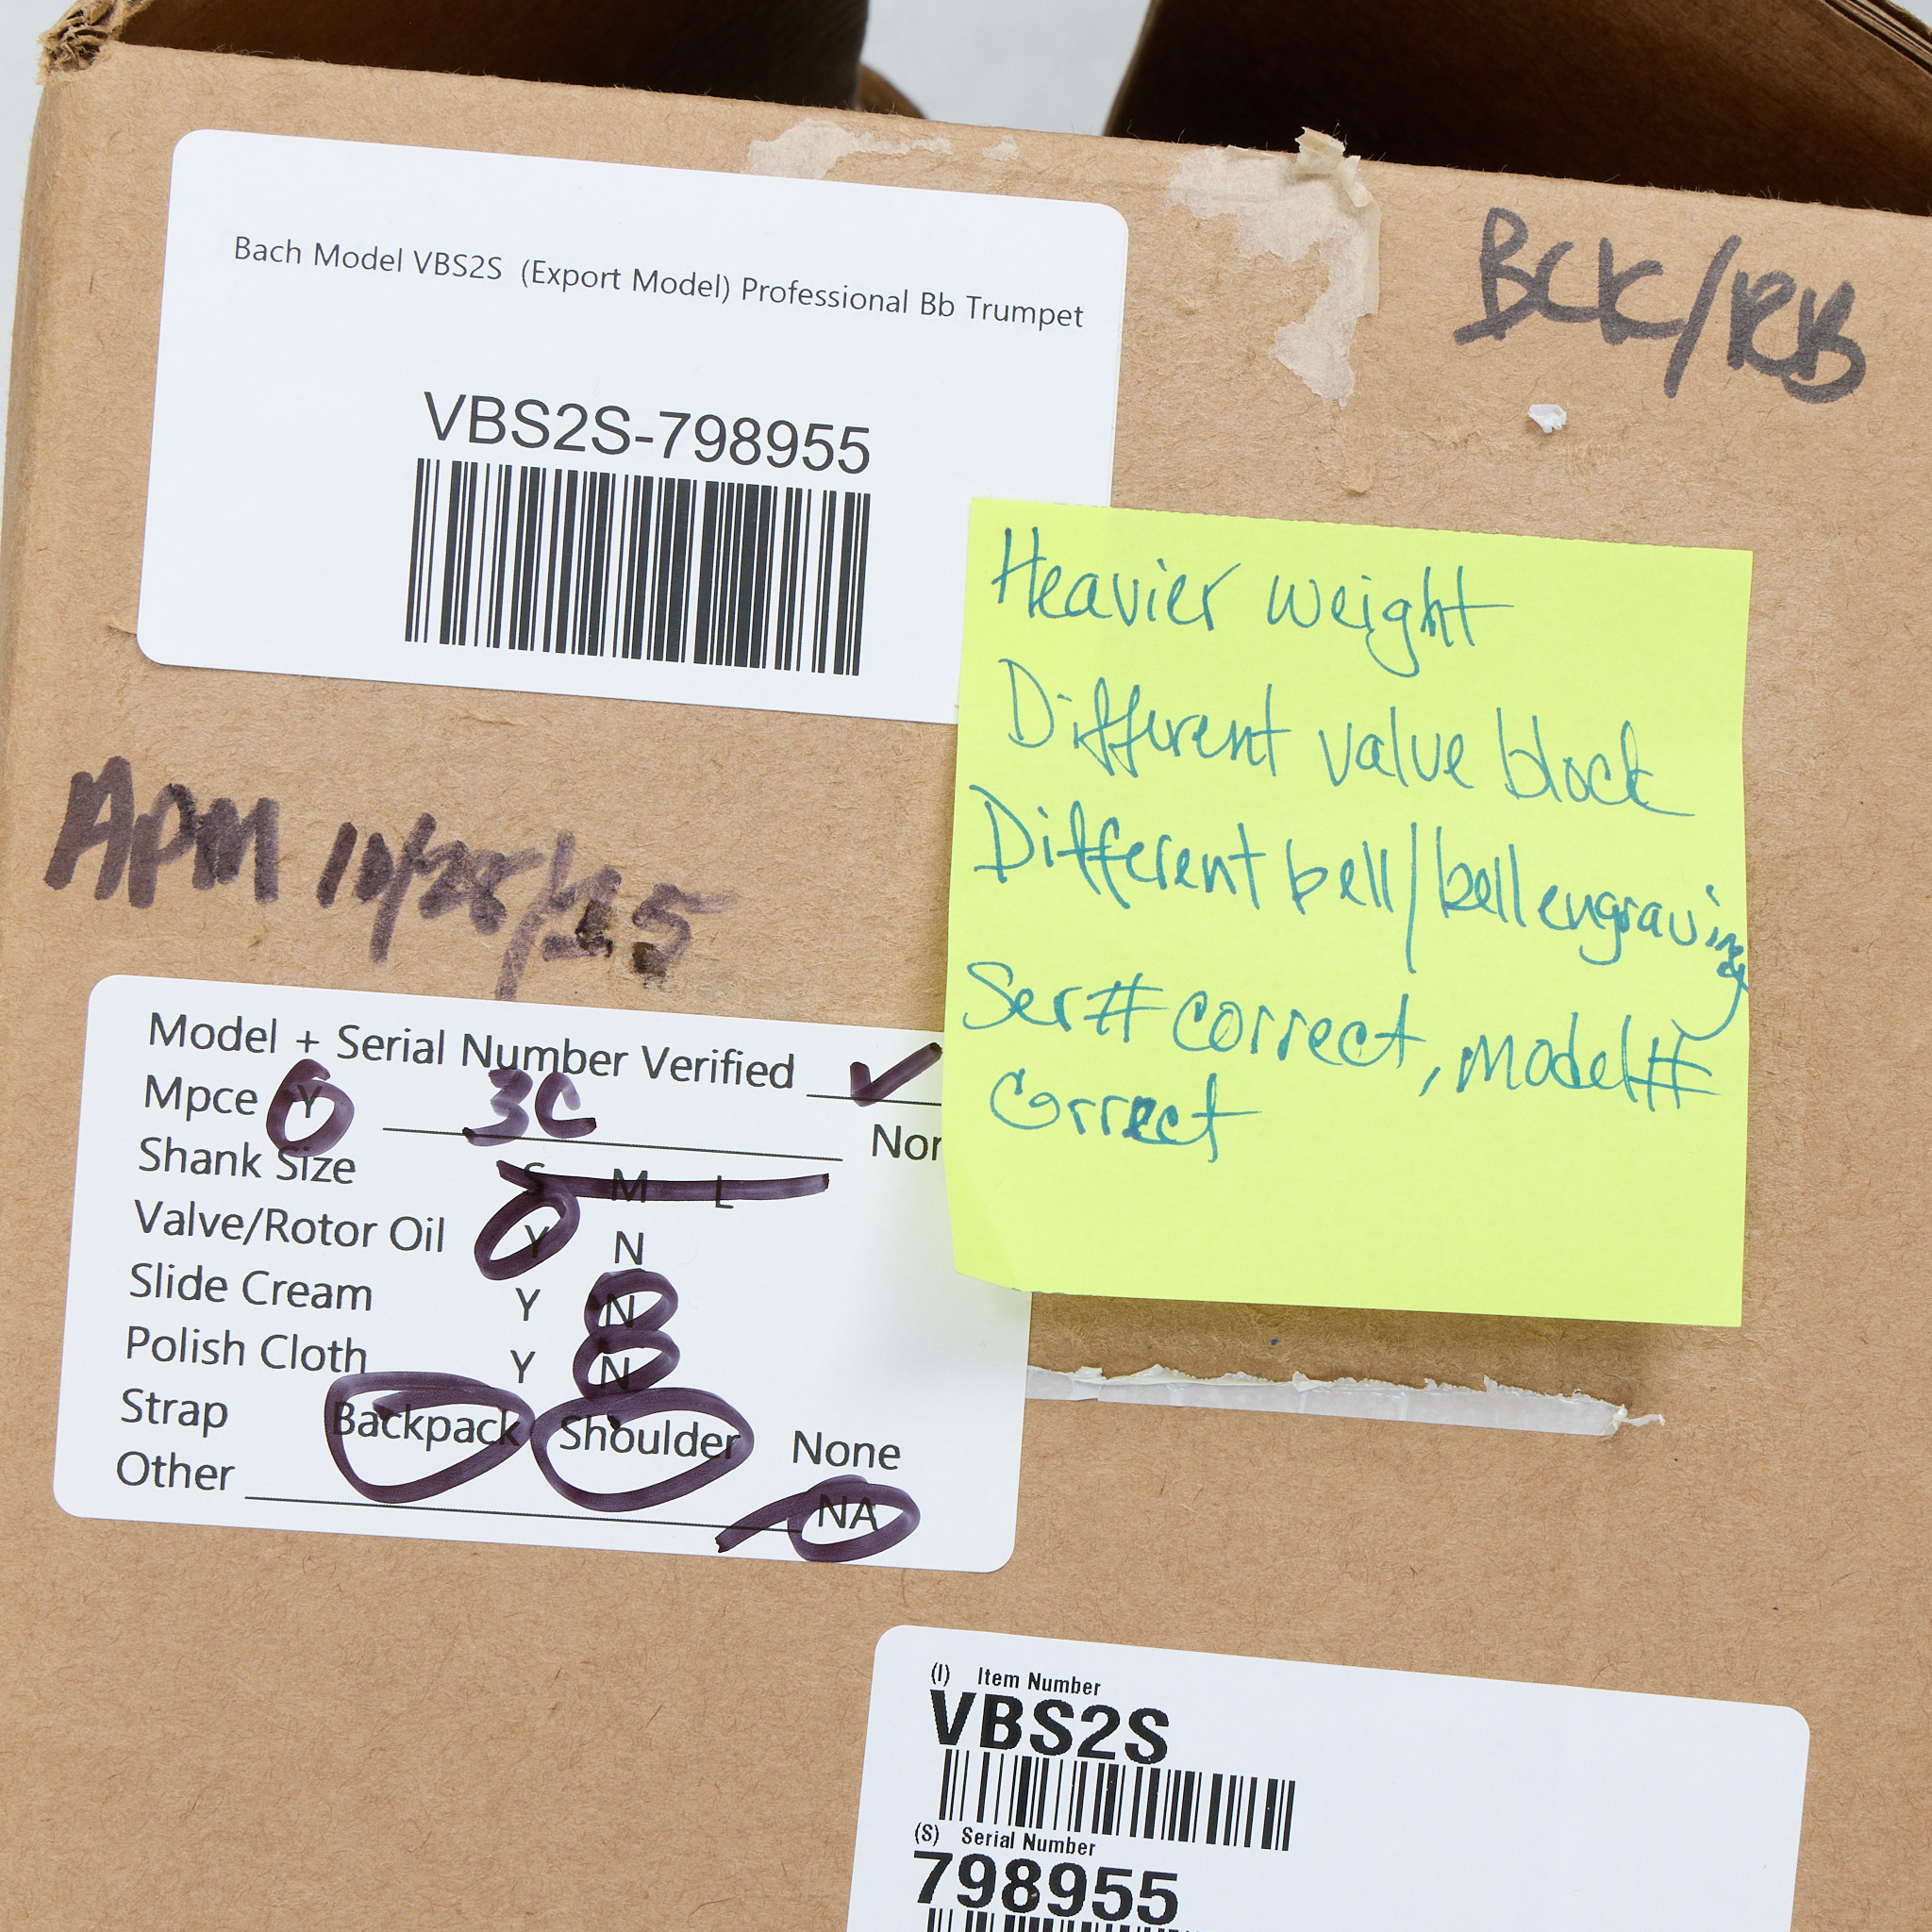 Bach Model VBS2S (Export Model) Professional Bb Trumpet
VBS2S-798955
BCK/RB
Heavier weight
Different valve block
Different bell/bell engraving
Ser# correct, model#
correct
APM 10/28/25
Model + Serial Number Verified ✓
Mpce Y 3C
Shank Size S M L
Valve/Rotor Oil Y N
Slide Cream Y N
Polish Cloth Y N
Strap Backpack Shoulder None
Other NA
(I) Item Number
VBS2S
(S) Serial Number
798955